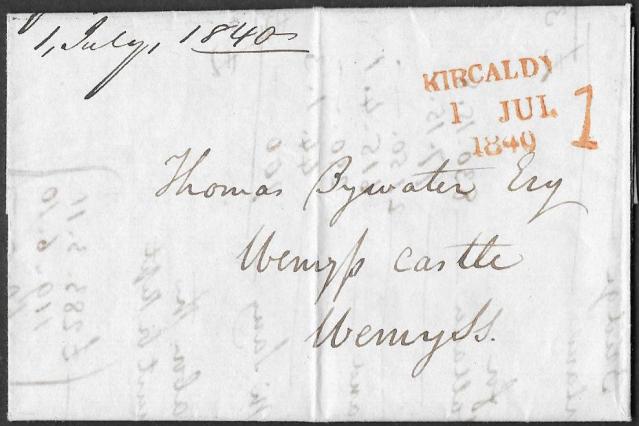 1, July, 1840
KIRCALDY
1 JUL
1840
1
Thomas Bywater Esq
Wemyss Castle
Wemyss.